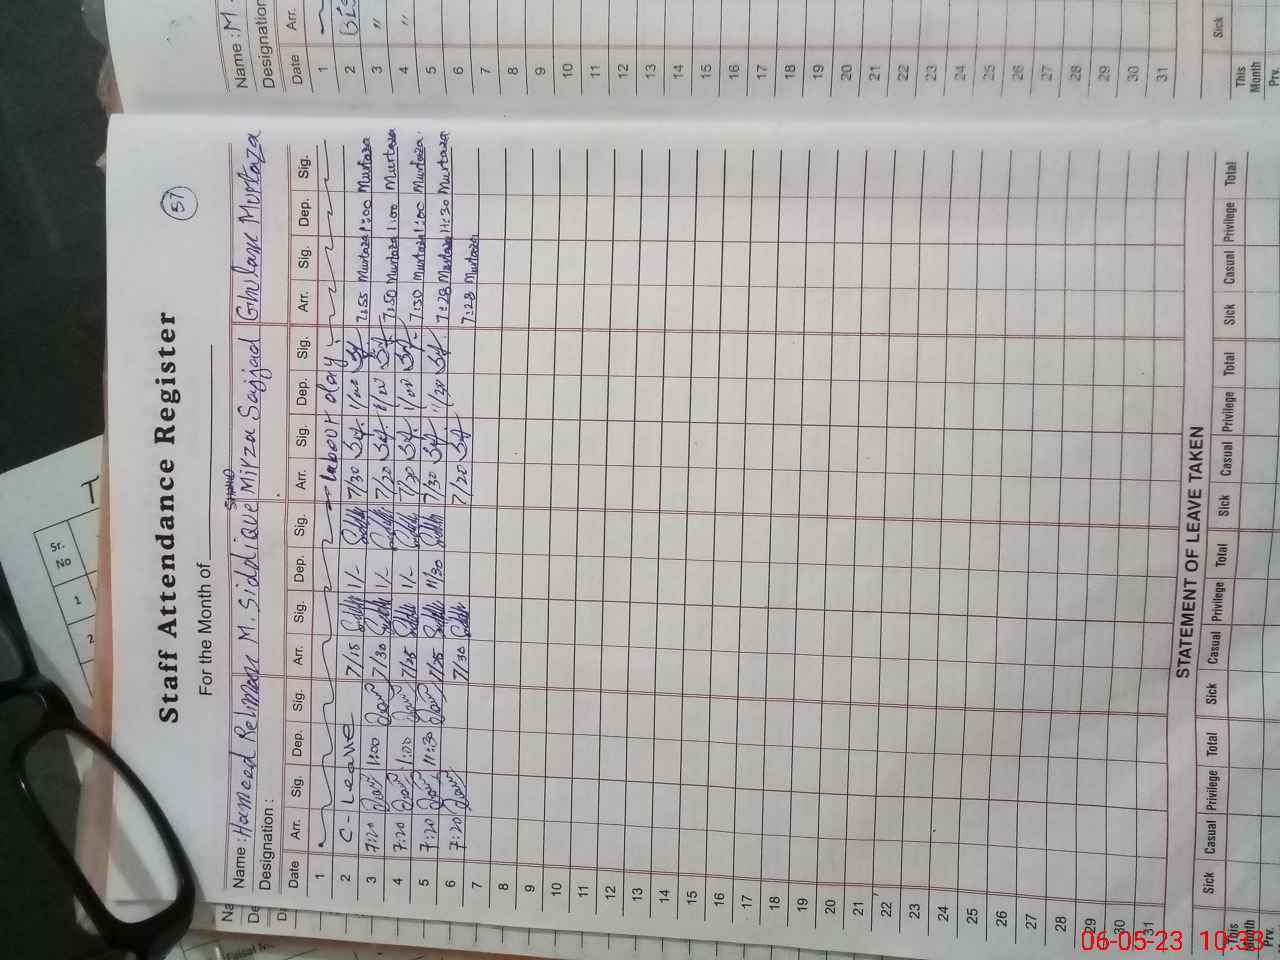 Staff Attendance Register
57
For the Month of
Name : Hameed Rehman M. Siddique Mirza Sajjad Ghulam Murtaza
Designation :
Date Arr. Sig. Dep. Sig. Arr. Sig. Dep. Sig. Arr. Sig. Dep. Sig. Arr. Sig. Dep. Sig.
1 Labour day
2 C- Leave 7/15 1/- 7/30 1/00 7:55 Murtaza 1:00 Murtaza
3 7:20 1:00 7/30 1/- 7/20 1/00 7:50 Murtaza 1:00 Murtaza
4 7:20 1:00 7/25 1/- 7/20 1/00 7:30 Murtaza 1:00 Murtaza
5 7:20 11:30 7/25 11/30 7/30 11/30 7:28 Murtaza 11:30 Murtaza
6 7:20 7/30 7/20 7:28 Murtaza
7
8
9
10
11
12
13
14
15
16
17
18
19
20
21
22
23
24
25
26
27
28
29
30
31
STATEMENT OF LEAVE TAKEN
Sick Casual Privilege Total Sick Casual Privilege Total Sick Casual Privilege Total Sick Casual Privilege Total
This Month
Prv.
Name : M.
Designation
Date Arr.
1
2
3 "
4 "
5
6
7
8
9
10
11
12
13
14
15
16
17
18
19
20
21
22
23
24
25
26
27
28
29
30
31
Sick
This Month
Prv.
Sr. No
1
2
06-05-23 10:33